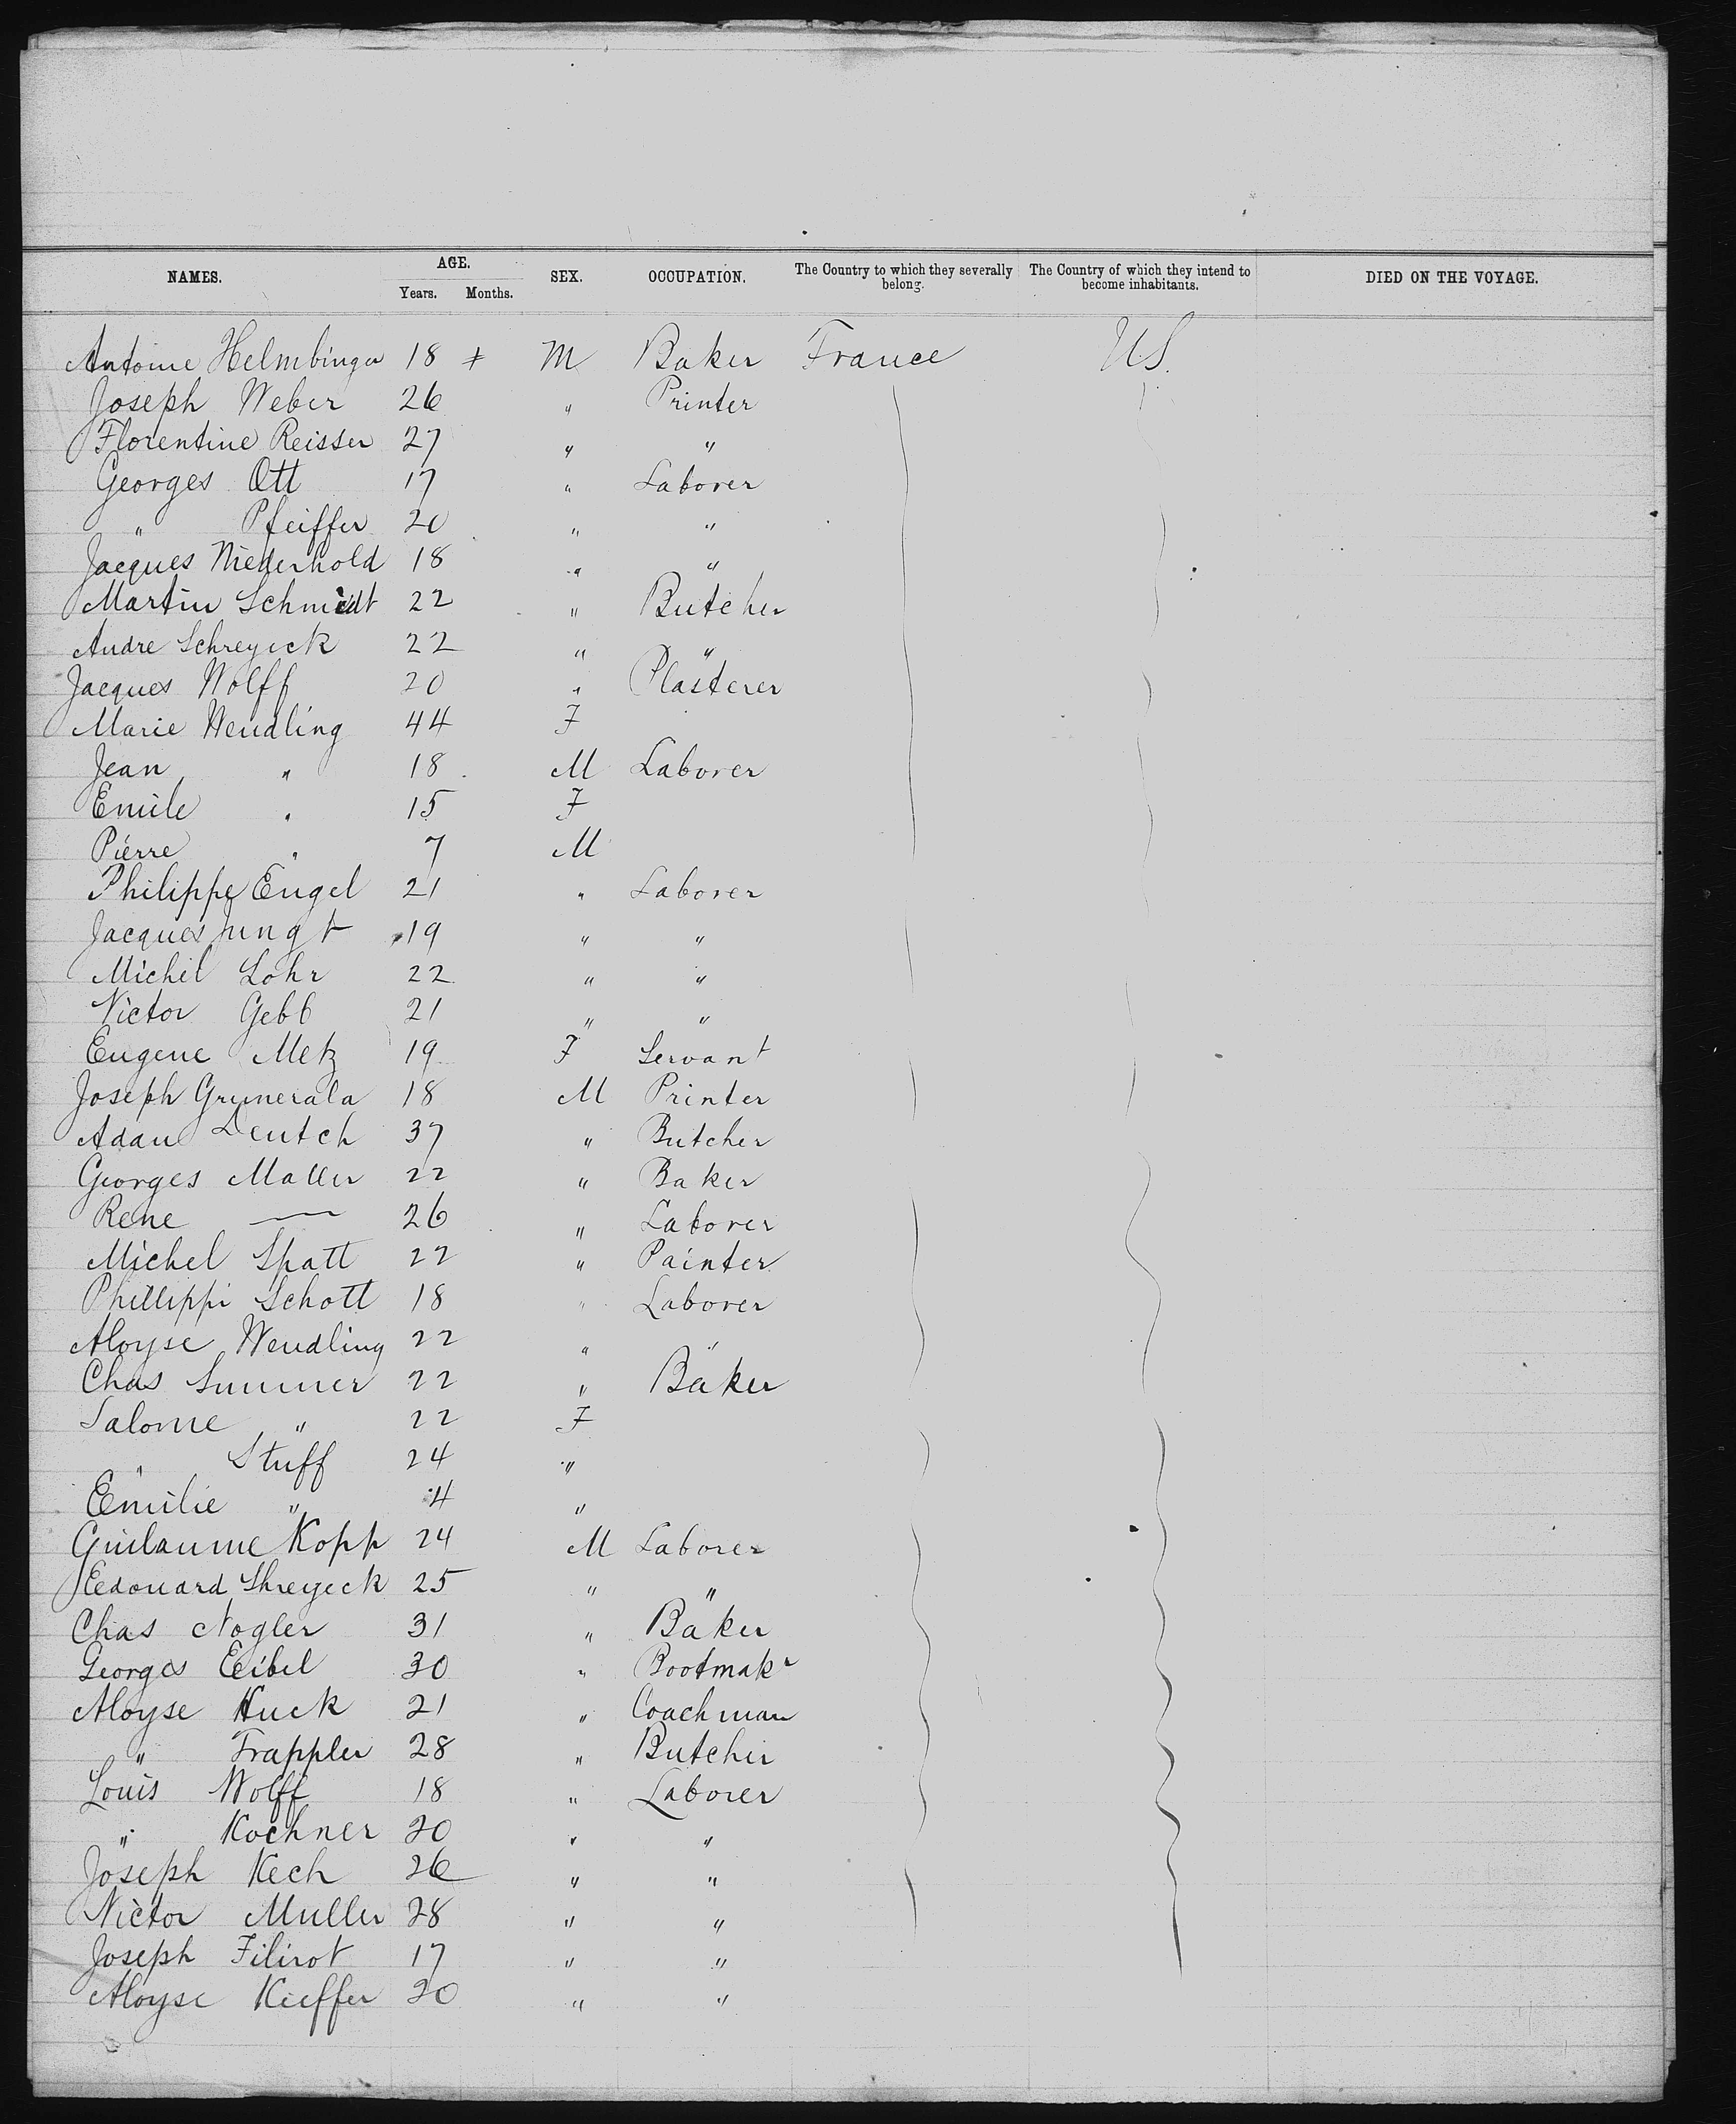 NAMES. AGE. SEX. OCCUPATION. The Country to which they severally belong. The Country of which they intend to become inhabitants. DIED ON THE VOYAGE.
Years. Months.
Antoine Helmbinger 18 M Baker France U.S.
Joseph Weber 26 " Printer
Florentine Reisser 27 " "
Georges Ott 17 " Laborer
" Pfeiffer 20 " "
Jacques Niederhold 18 " "
Martin Schmidt 22 " Butcher
Andre Schreyeck 22 " "
Jacques Wolff 20 " Plasterer
Marie Wendling 44 F
Jean " 18 M Laborer
Emile " 15 F
Pierre " 7 M
Philippe Engel 21 " Laborer
Jacques Jungt 19 " "
Michel Lohr 22 " "
Victor Gebb 21 " "
Eugene Metz 19 F Servant
Joseph Grunerala 18 M Printer
Adam Deutch 37 " Butcher
Georges Maller 22 " Baker
Rene — 26 " Laborer
Michel Spatt 22 " Painter
Phillippi Schott 18 " Laborer
Aloyse Wendling 22 " "
Chas Summer 22 " Baker
Salome " 22 F
" Stuff 24 "
Emilie " 4 "
Guilaume Kopp 24 M Laborer
Edouard Shreyeck 25 " "
Chas Nogler 31 " Baker
Georges Eibel 30 " Bootmakr
Aloyse Huck 21 " Coachman
" Trappler 28 " Butcher
Louis Wolff 18 " Laborer
" Kochner 20 " "
Joseph Kech 26 " "
Victor Muller 28 " "
Joseph Filirot 17 " "
Aloyse Kieffer 20 " "